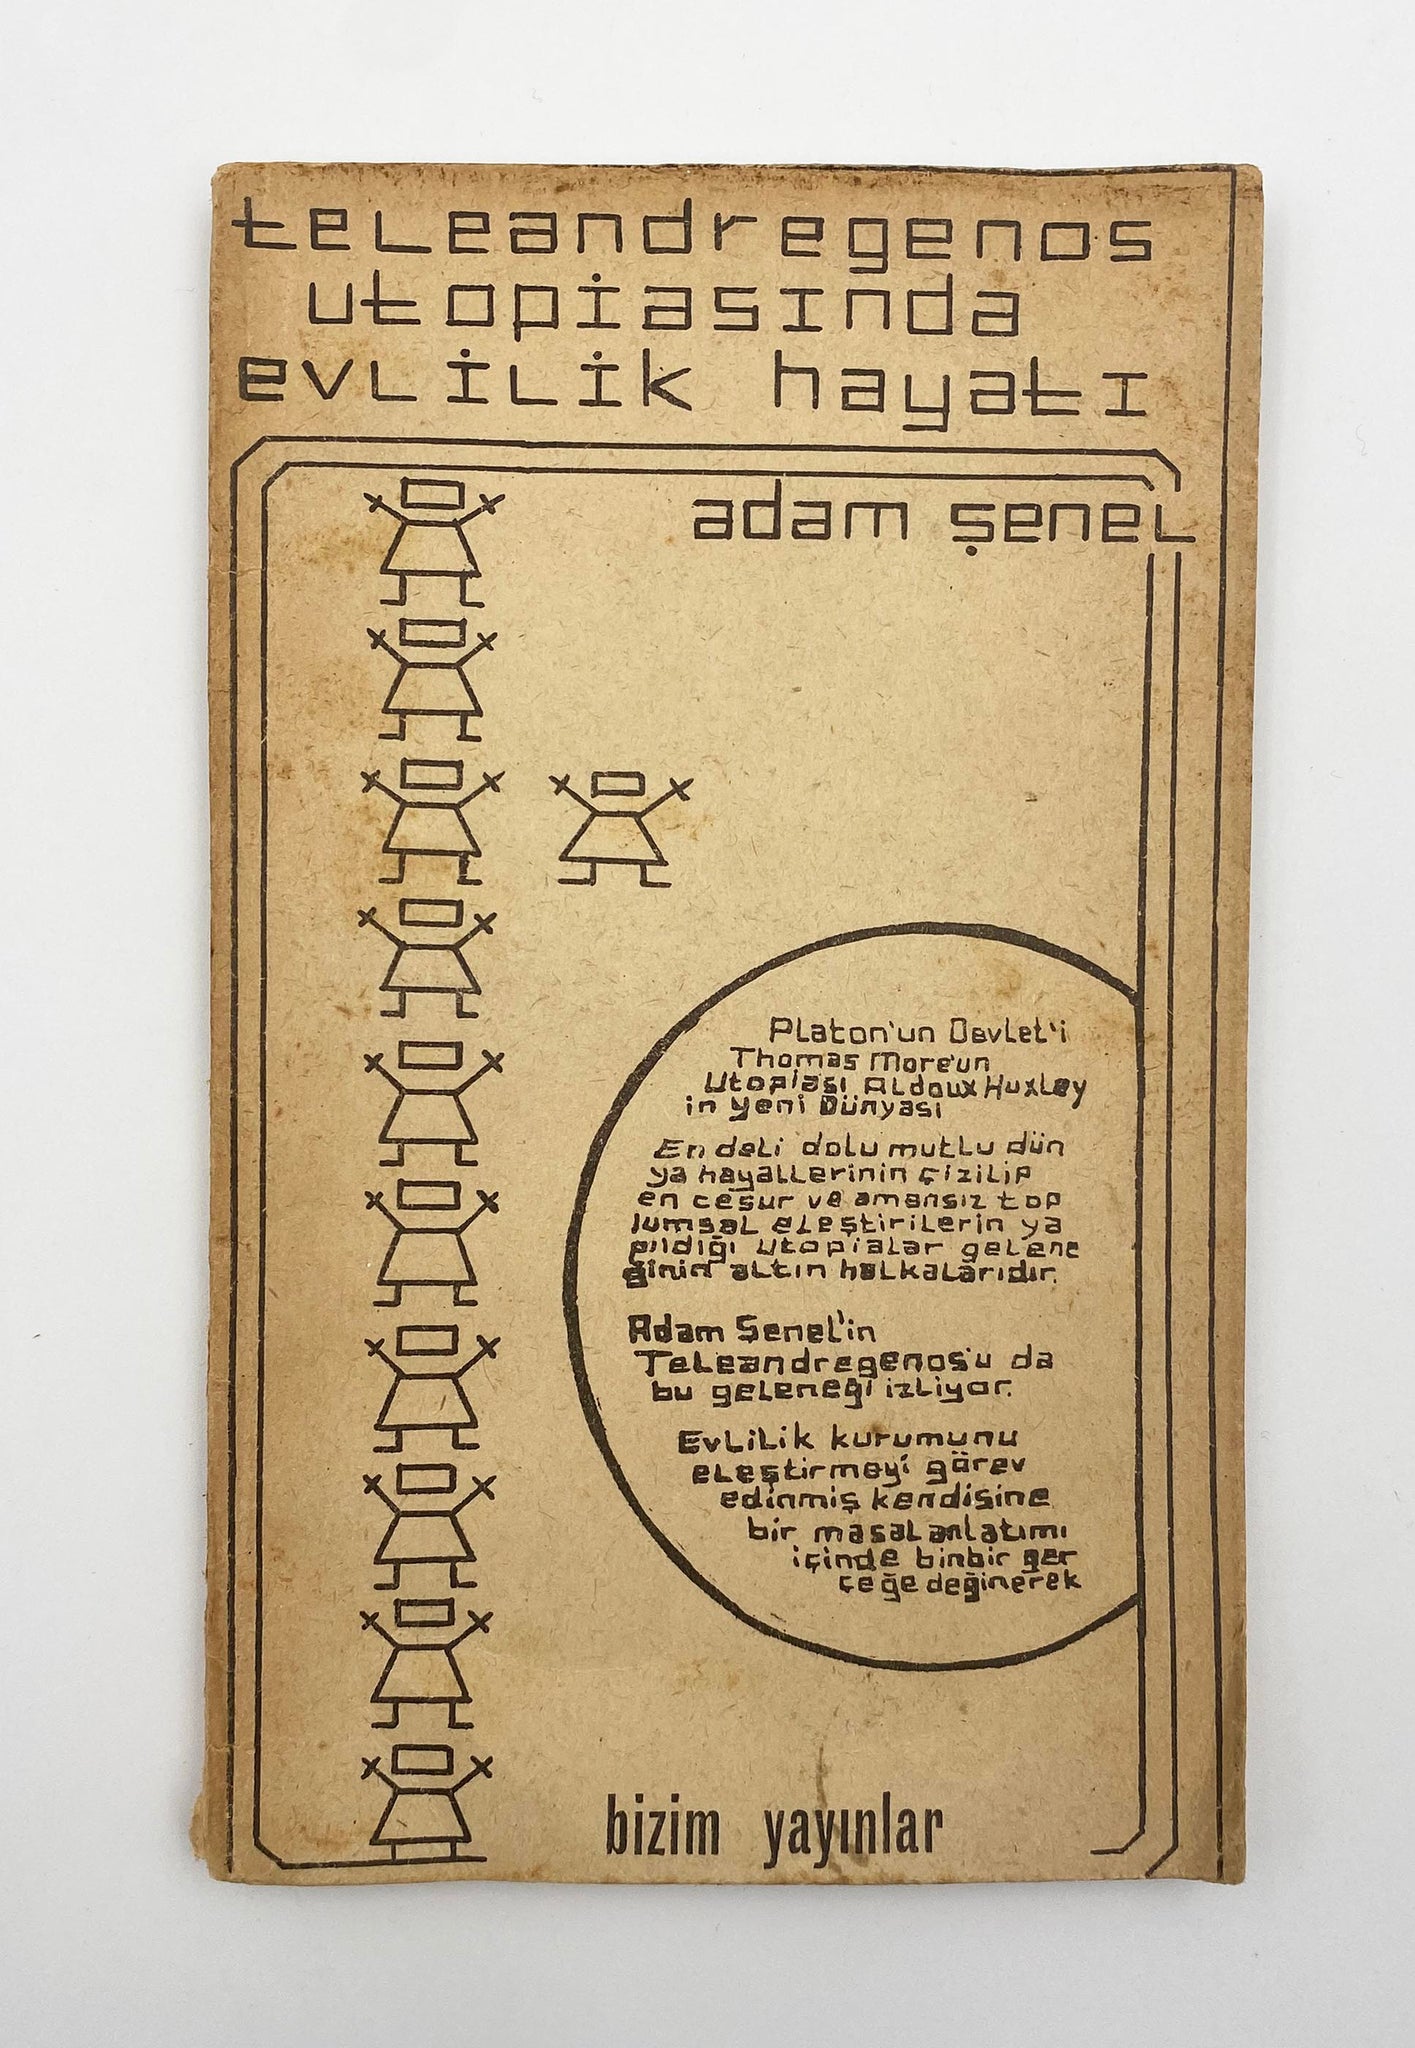 teleandregenos
utopiasında
evlilik hayatı
adam şenel
Platon'un Devlet'i
Thomas More'un
Utopiası Aldoux Huxley
in Yeni Dünyası
En deli dolu mutlu dün
ya hayallerinin çizilip
en cesur ve amansız top
lumsal eleştirilerin ya
pıldığı utopialar gelene
ğinin altın halkalarıdır.
Adam Şenel'in
Teleandregenos'u da
bu geleneği izliyor.
Evlilik kurumunu
eleştirmeyi görev
edinmiş kendisine
bir masal anlatımı
içinde binbir ger
çeğe değinerek
bizim yayınlar